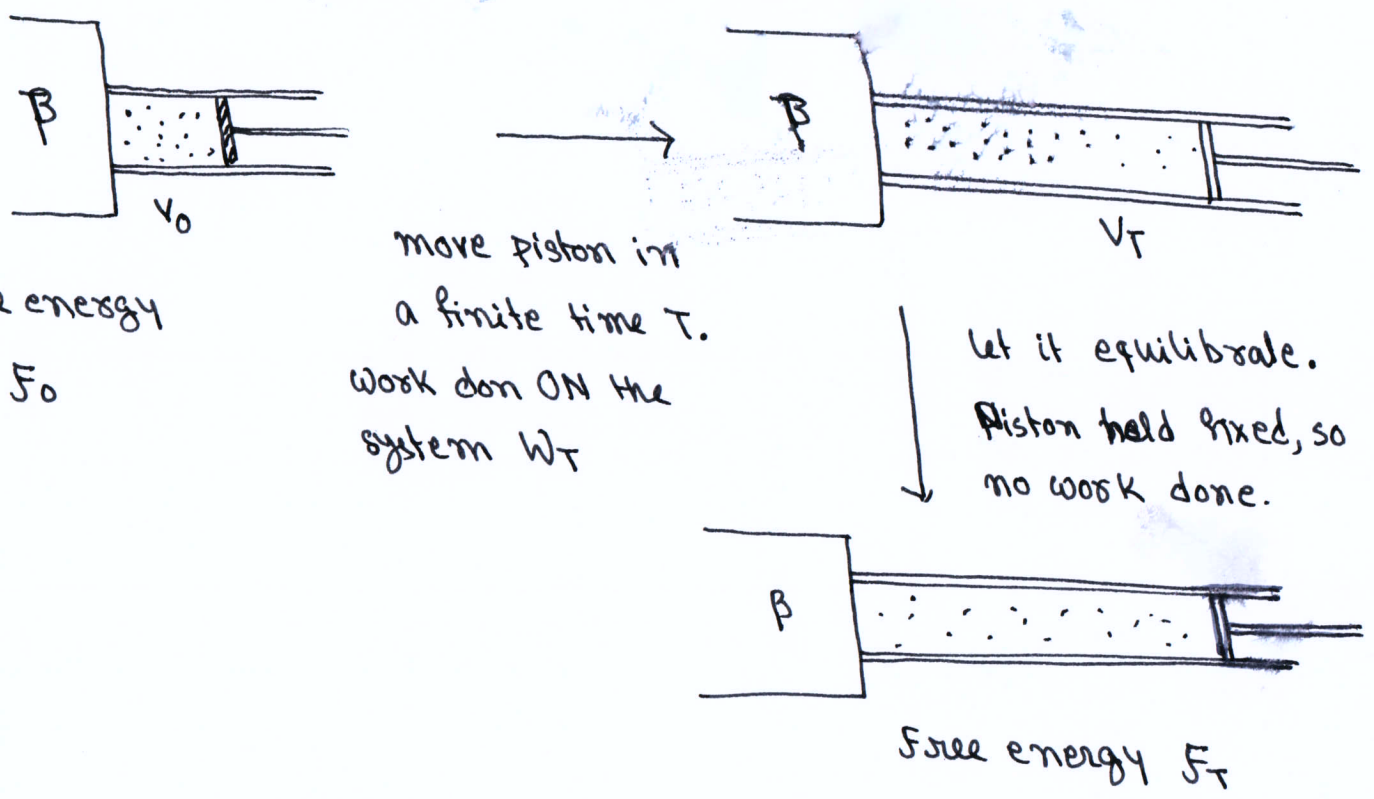 β
V₀
energy
F₀
move piston in
a finite time T.
work don ON the
system W_T
β
V_T
let it equilibrate.
Piston held fixed, so
no work done.
β
Free energy F_T